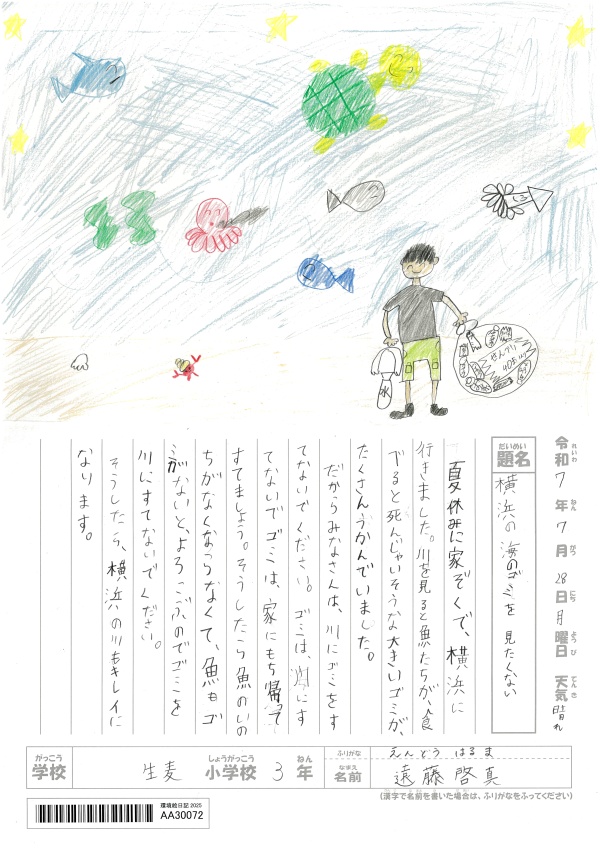 れいわ ねん がつ にち ようび てんき
令和 7 年 7 月 28 日 月 曜日 天気 晴れ
だいめい
題名 横浜の海のゴミを 見たくない
夏休みに家ぞくで、横浜に
行きました。川を見ると魚たちが、食
べると死んじゃいそうな大きいゴミが、
たくさんうかんでいました。
だからみなさんは、川にゴミをす
てないでください。ゴミは、川にす
てないでゴミは、家にもち帰って
すてましょう。そうしたら魚のいの
ちがなくならなくて、魚もゴ
ミがないと、よろこぶのでゴミを
川にすてないでください。
そうしたら、横浜の川もキレイに
なります。
水
がっこう しょうがっこう ねん
学校 生麦 小学校 3 年
ふりがな えんどう はるま
なまえ
名前 遠藤啓真
(漢字で名前を書いた場合は、ふりがなをふってください)
環境絵日記 2025
AA30072